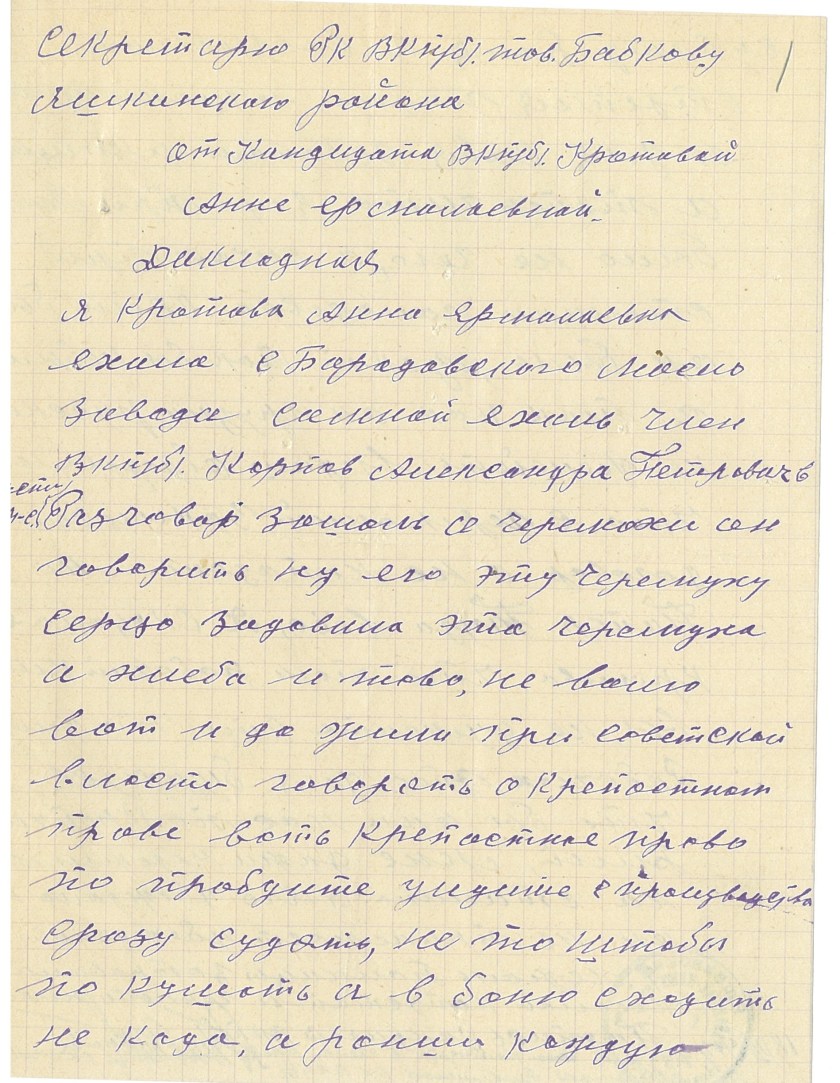 Секретарю РК ВКп(б). тов. Бабкову
Яшкинского района
от Кандидата ВКп(б). Кротовай
Анне Ермолаевной.
Докладная
я Кротова Анна Ярмолаевна
ехала с Барадавского Масло
Завода самной ехаль член
ВКп(б). Карпов Александра Петровичь
Разговор зашоль о черемохи он
говорить ну его эту черемуху
серцо задавила эта черемуха
а хлеба и тово, не волю
вот и до жили при советской
власти говорять о Крепостном
праве воть Крепостное право
по пробуите уидите с производства
сразу судять, не то штобы
по кушать а в баню сходить
не када, а раньши каждую